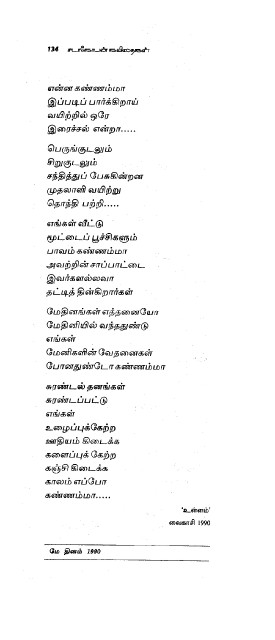 134 சடாகோபன் கவிதைகள்
என்ன கண்ணம்மா
இப்படிப் பார்க்கிறாய்
வயிற்றில் ஒரே
இரைச்சல் என்றா.....
பெருங்குடலும்
சிறுகுடலும்
சந்தித்துப் பேசுகின்றன
முதலாளி வயிற்று
தொந்தி பற்றி.....
எங்கள் வீட்டு
மூட்டைப் பூச்சிகளும்
பாவம் கண்ணம்மா
அவற்றின் சாப்பாட்டை
இவர்களல்லவா
தட்டித் தின்கிறார்கள்
மேதினங்கள் எத்தனையோ
மேதினியில் வந்ததுண்டு
எங்கள்
மேனிகளின் வேதனைகள்
போனதுண்டோ கண்ணம்மா
சுரண்டல் தனங்கள்
சுரண்டப்பட்டு
எங்கள்
உழைப்புக்கேற்ற
ஊதியம் கிடைக்க
களைப்புக் கேற்ற
கஞ்சி கிடைக்க
காலம் எப்போ
கண்ணம்மா.....
'உள்ளம்'
வைகாசி 1990
மே தினம் 1990